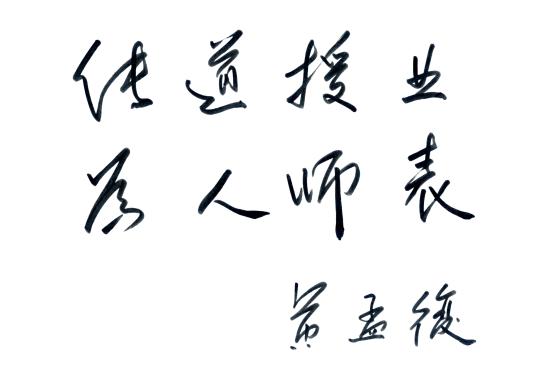 传道授业
为人师表
黄孟复